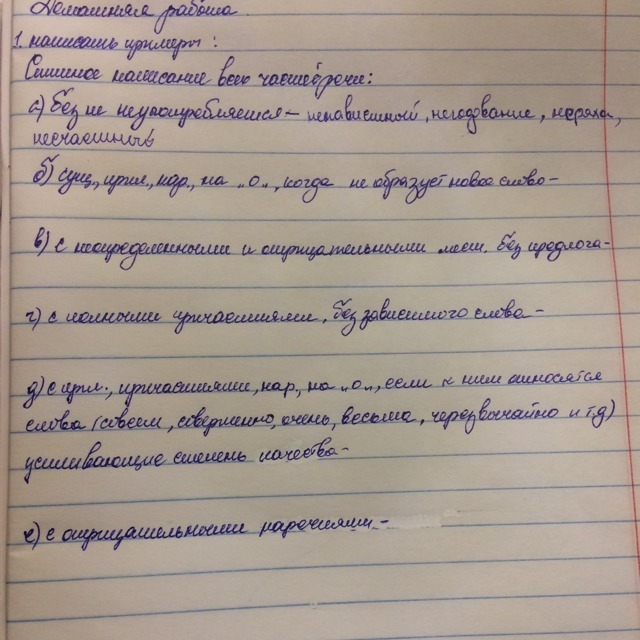 Домашняя работа
1. написать примеры:
Слитное написание всех частей речи:
а) без не неупотребляется – ненавистный, негодование, неряха,
несчастный
б) сущ., прил., нар., на „о„, когда не образует новое слово –
в) с неопределенными и отрицательными мест. без предлога –
г) с полными причастиями, без зависимого слова –
д) с прил., причастиями, нар., на „о„, если к ним относятся
слова (совсем, совершенно, очень, весьма, черезвычайно и т.д)
усиливающие степень качества –
е) с отрицательными наречиями –